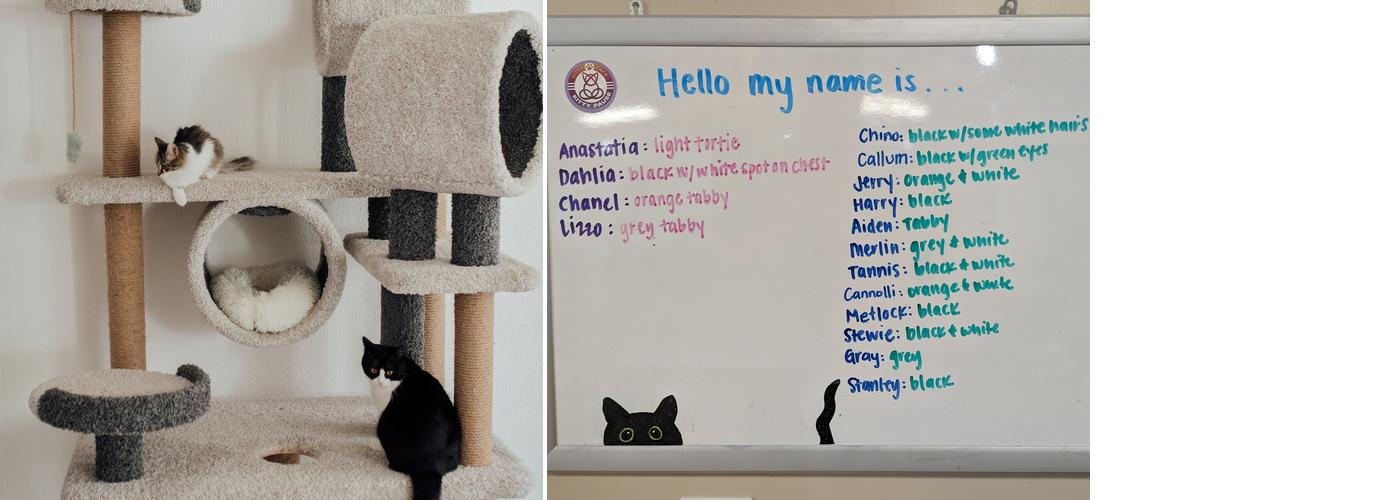 Hello my name is...
KITTY PAUSE
Anastatia: light tortie
Dahlia: black w/ white spot on chest
Chanel: orange tabby
Lizzo: grey tabby
Chino: black w/ some white hairs
Callum: black w/ green eyes
Jerry: orange & white
Harry: black
Aiden: Tabby
Merlin: grey & white
Tannis: black & white
Cannolli: orange & white
Metlock: black
Stewie: black & white
Gray: grey
Stanley: black